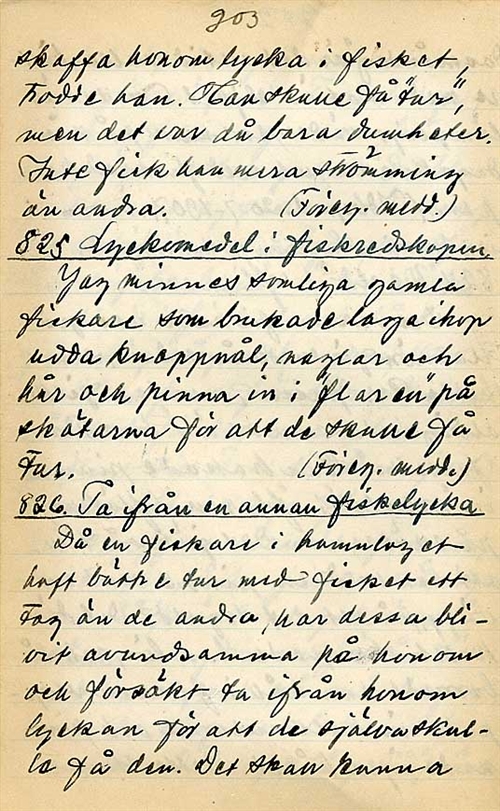 203
skaffa honom lycka i fisket,
trodde han. Han skulle få "tur",
men det var då bara dumheter.
Inte fick han mera strömming
än andra. (Föreg. medd.)
825 Lyckomedel i fiskredskapen.
Jag minnes somliga gamla
fiskare som brukade laga ihop
udda knappnål, naglar och
hår och pinna in i "flaren" på
skötarna för att de skulle få
tur. (Föreg. medd.)
826. Ta ifrån en annan fiskelycka
Då en fiskare i hamnlaget
haft bättre tur med fisket ett
tag än de andra, har dessa bli-
vit avundsamma på honom
och försökt ta ifrån honom
lyckan för att de själva skul-
le få den. Det skall kunna